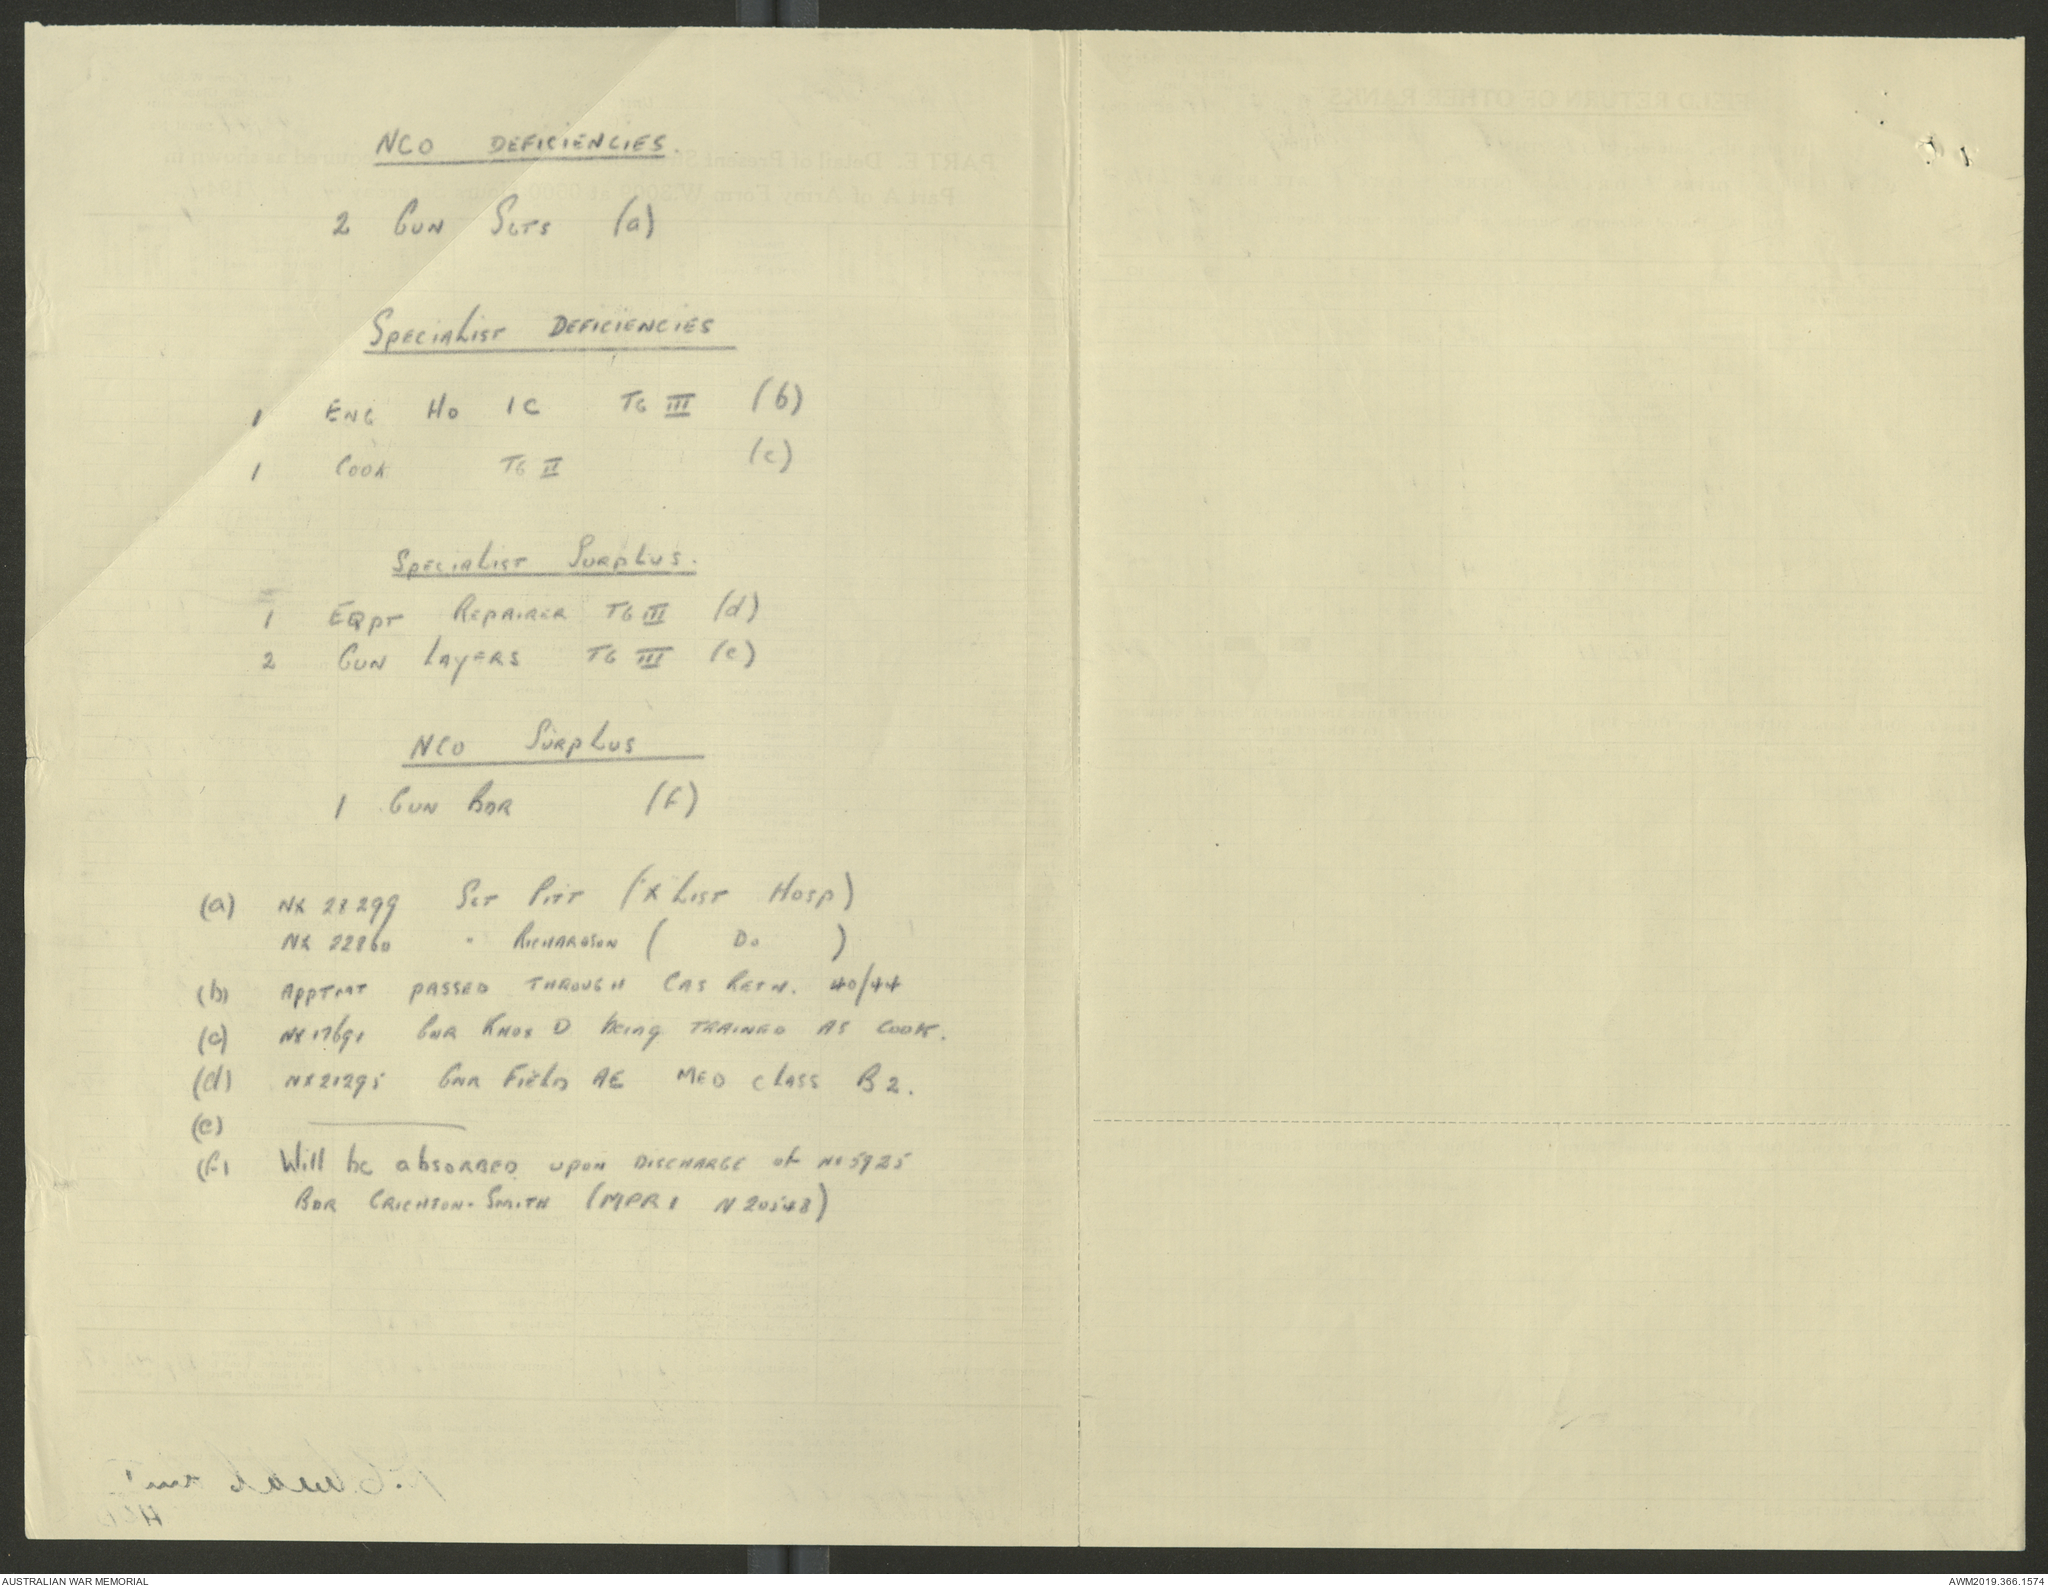 NCO DEFICIENCIES.
2 GUN SGTS (a)
SPECIALIST DEFICIENCIES
1 ENG HO IC TG III (b)
1 COOK TG II (c)
SPECIALIST SURPLUS.
1 EQPT REPAIRER TG III (d)
2 GUN LAYERS TG III (e)
NCO SURPLUS
1 GUN BDR (f)
(a) NX 28299 SGT PITT (X LIST HOSP)
NX 22860 " RICHARDSON ( DO )
(b) APPTMT PASSED THROUGH CAS RETN. 40/44
(c) NX17691 GNR KNOX D being TRAINED AS COOK.
(d) NX21295 GNR FIELD AE MED CLASS B2.
(e)
(f) Will be absORBED UPON DISCHARGE of NX5925
BDR CRICHTON-SMITH (MPR1 N 20548)
FIELD RETURN OF OTHER RANKS
AUSTRALIAN WAR MEMORIAL
AWM2019.366.1574